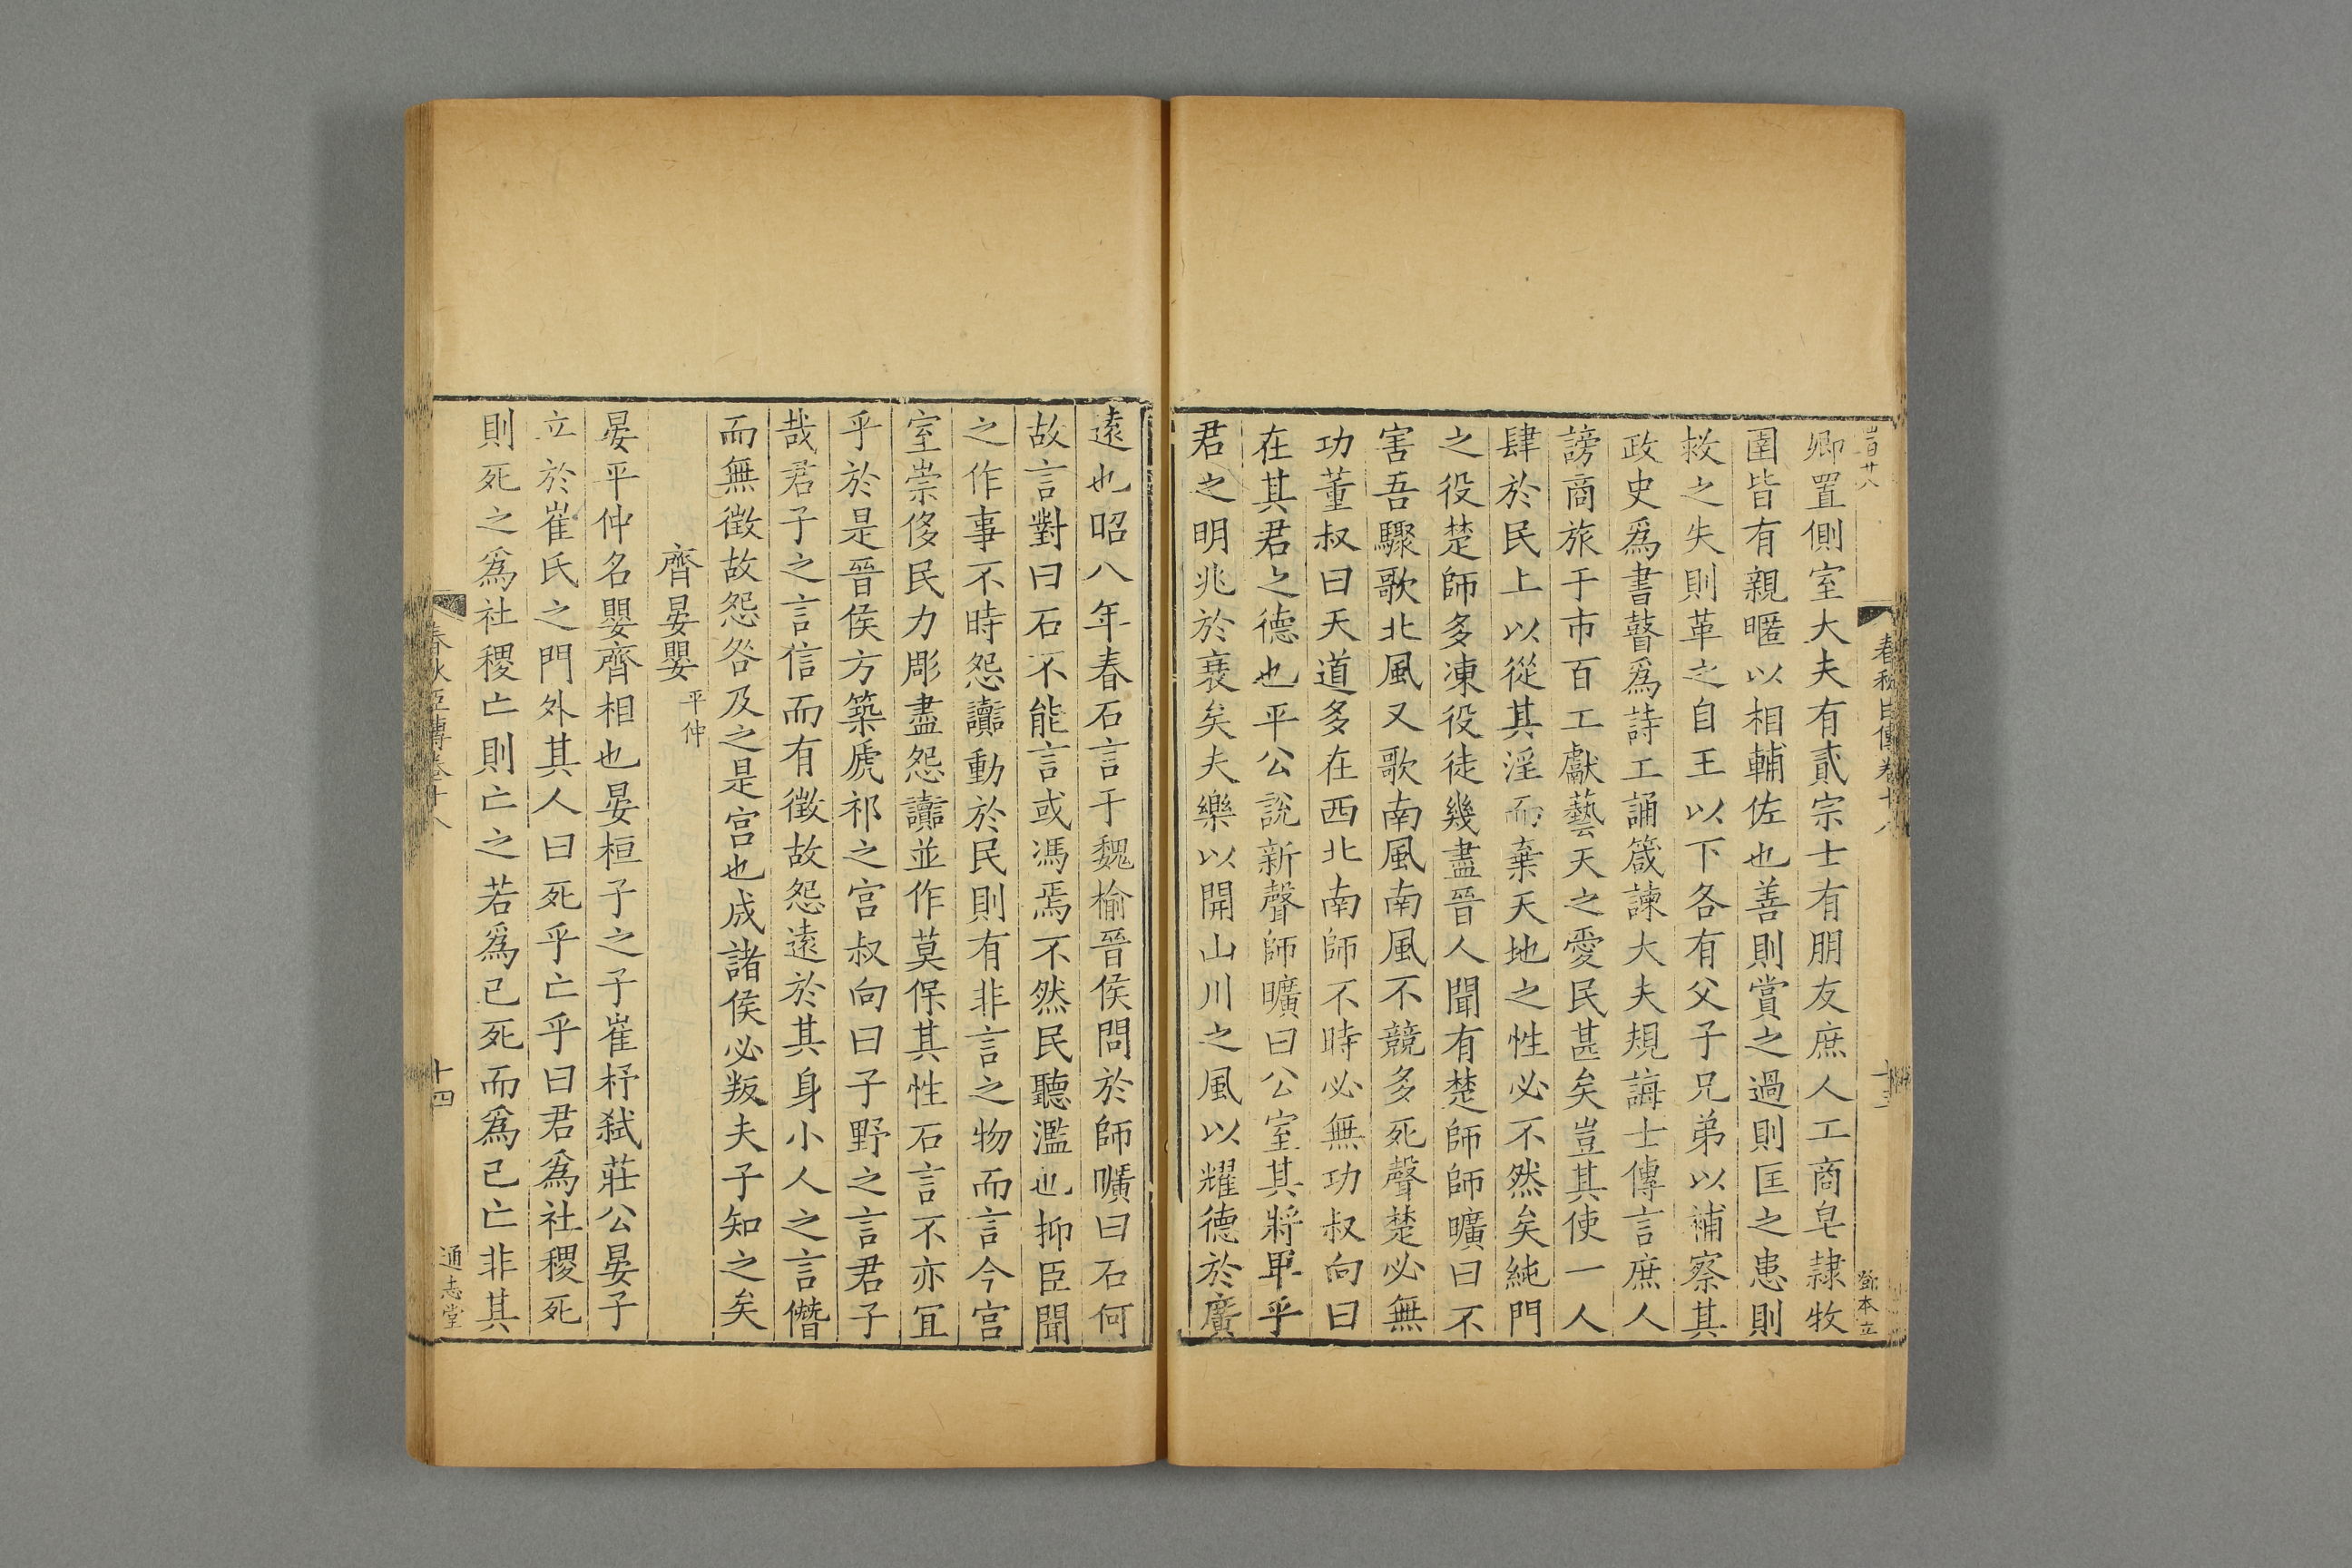 卿置側室大夫有貳宗士有朋友庶人工商皂隷牧
圉皆有親暱以相輔佐也善則賞之過則匡之患則
救之失則革之自王以下各有父子兄弟以補察其
政史爲書瞽爲詩工誦箴諫大夫規誨士傳言庶人
謗商旅于市百工獻藝天之愛民甚矣豈其使一人
肆於民上以從其淫而棄天地之性必不然矣純門
之役楚師多凍役徒幾盡晉人聞有楚師師曠曰不
害吾驟歌北風又歌南風南風不競多死聲楚必無
功董叔曰天道多在西北南師不時必無功叔向曰
在其君之德也平公說新聲師曠曰公室其將卑乎
君之明兆於衰矣夫樂以開山川之風以耀德於廣
春秋臣傳卷十八
鄧本立
遠也昭八年春石言于魏榆晉侯問於師曠曰石何
故言對曰石不能言或馮焉不然民聽濫也抑臣聞
之作事不時怨讟動於民則有非言之物而言今宫
室崇侈民力彫盡怨讟並作莫保其性石言不亦宜
乎於是晉侯方築虒祁之宫叔向曰子野之言君子
哉君子之言信而有徵故怨遠於其身小人之言僭
而無徵故怨咎及之是宫也成諸侯必叛夫子知之矣
齊晏嬰 平仲
晏平仲名嬰齊相也晏桓子之子崔杼弑莊公晏子
立於崔氏之門外其人曰死乎亡乎曰君爲社稷死
則死之爲社稷亡則亡之若爲已死而爲已亡非其
春秋臣傳卷十八
十四
通志堂